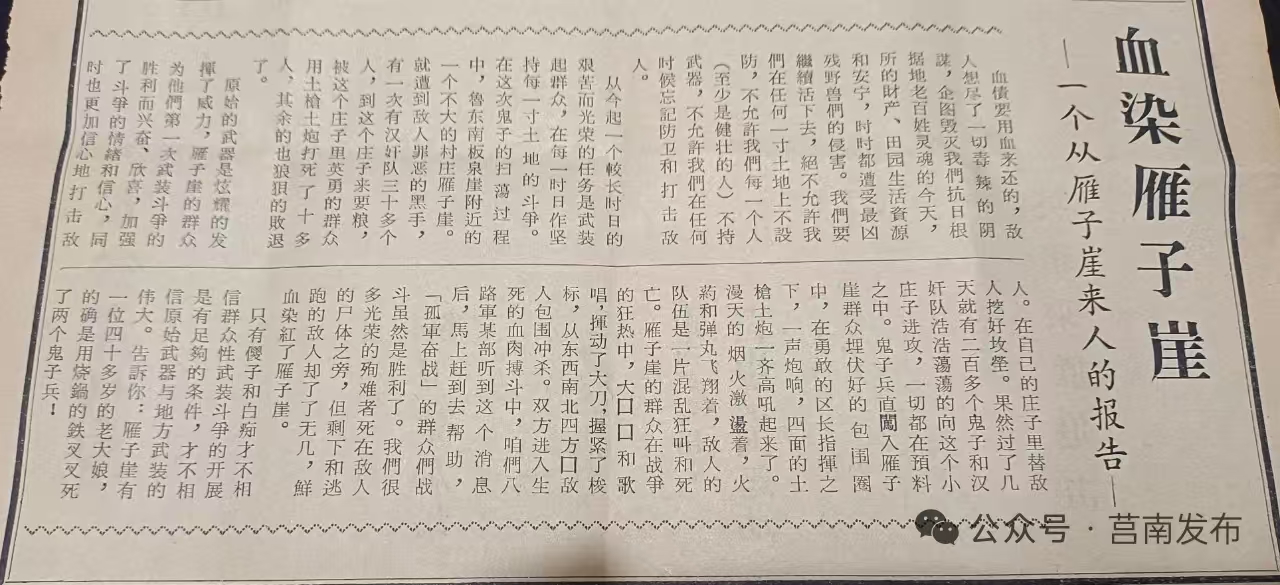 血染雁子崖
—一个从雁子崖来人的报告—
血債要用血来还的，敌
人想尽了一切毒辣的阴
謀，企图毁灭我們抗日根
据地老百姓灵魂的今天，
所的財产、田园生活資源
和安宁，时时都遭受最凶
残野兽們的侵害。我們要
繼續活下去，絕不允許我
們在任何一寸土地上不設
防，不允許我們每一个人
（至少是健壮的人）不持
武器，不允許我們在任何
时候忘記防卫和打击敌
人。
从今起一个較长时日的
艰苦而光荣的任务是武装
起群众，在每一时日作坚
持每一寸土地的斗爭。
在这次鬼子的扫蕩过程
中，魯东南板泉崖附近的
一个不大的村庄雁子崖。
就遭到敌人罪恶的黑手，
有一次有汉奸队三十多个
人，到这个庄子来要粮，
被这个庄子里英勇的群众
用土槍土炮打死了十多
人，其余的也狼狽的敗退
了。
原始的武器是炫耀的发
揮了威力，雁子崖的群众
为他們第一次武装斗爭的
胜利而兴奋、欣喜，加强
了斗爭的情緒和信心，同
时也更加信心地打击敌
人。在自己的庄子里替敌
人挖好坟墊。果然过了几
天就有二百多个鬼子和汉
奸队浩浩蕩蕩的向这个小
庄子进攻，一切都在預料
之中。鬼子兵直闖入雁子
崖群众埋伏好的包围圈
中，在勇敢的区长指揮之
下，一声炮响，四面的土
槍土炮一齐高吼起来了。
漫天的烟火激盪着，火
葯和弹丸飞翔着，敌人的
队伍是一片混乱狂叫和死
亡。雁子崖的群众在战爭
的狂热中，大口口和歌
唱，揮动了大刀，握紧了梭
标，从东西南北四方口敌
人包围冲杀。双方进入生
死的血肉搏斗中，咱們八
路軍某部听到这个消息
后，馬上赶到去帮助，
「孤軍奋战」的群众們战
斗虽然是胜利了。我們很
多光荣的殉难者死在敌人
的尸体之旁，但剩下和逃
跑的敌人却了了无几，鮮
血染紅了雁子崖。
只有儍子和白痴才不相
信群众性武装斗爭的开展
是有足夠的条件，才不相
信原始武器与地方武装的
伟大。告訴你：雁子崖有
一位四十多岁的老大娘，
的确是用烧鍋的鉄叉叉死
了两个鬼子兵！
公众号·莒南发布